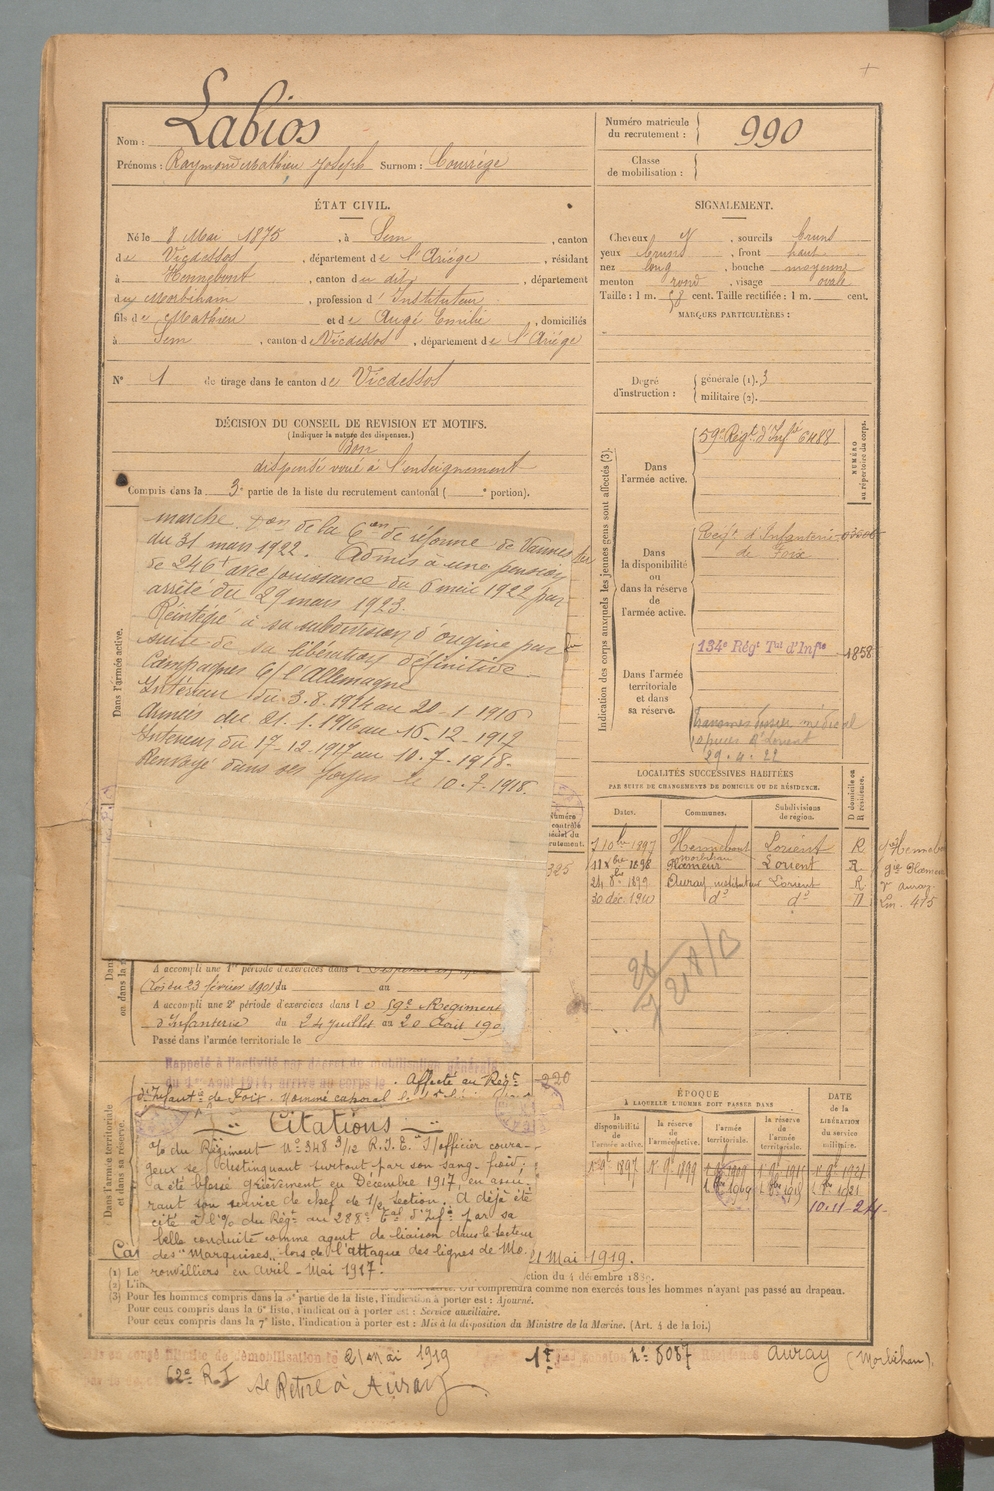 Nom : Labios
Prénoms : Raymond Mathieu Joseph Surnom : Courrége
Numéro matricule du recrutement : 990
Classe de mobilisation :
ÉTAT CIVIL.
Né le 8 Mai 1875, à Sem, canton
de Vicdessos, département de l'Ariége, résidant
à Hennebont, canton du dit, département
du Morbihan, profession d'Instituteur
fils de Mathieu et de Augé Emilie, domiciliés
à Sem, canton de Vicdessos, département de l'Ariége
N° 1 de tirage dans le canton de Vicdessos
SIGNALEMENT.
Cheveux , sourcils bruns
yeux bruns, front haut
nez long, bouche moyenne
menton rond, visage ovale
Taille : 1 m. 58 cent. Taille rectifiée : 1 m. cent.
MARQUES PARTICULIÈRES :
Degré d'instruction : générale (1). 3
militaire (2).
DÉCISION DU CONSEIL DE REVISION ET MOTIFS.
(Indiquer la nature des dispenses.)
Bon
dispensé voué à l'enseignement
Compris dans la 3e partie de la liste du recrutement cantonal ( e portion).
Dans l'armée active.
marche. Don de la Con de réforme de Vannes
du 31 mars 1922. Admis à une pension
de 246f avec jouissance du 6 mai 1922 par
arrêté du 29 mars 1923.
Réintégré à sa subdivision d'origine par
suite de sa libération définitive
Campagnes C/ l'Allemagne
Intérieur du 3.8.1914 au 20-1-1916
Armées du 21.1.1916 au 16-12-1917
Interieur du 17-12-1917 au 10.7.1918.
Renvoyé dans ses foyers le 10.7.1918.
325
A accompli une 1re période d'exercices dans l
du 23 février 1901 du au
A accompli une 2e période d'exercices dans le 59e Régiment
d'Infanterie du 24 juillet au 20 Août 190
Passé dans l'armée territoriale le
Dans l'armée territoriale et dans sa réserve.
Rappelé à l'activité par décret de mobilisation générale
du 1er Août 1914, arrivé au corps le . Affecté au Régt
d'Infanterie de Foix. Nommé caporal le
220
Citations
o/o du Régiment N° 348 3/12 R.I.E. "S/officier coura-
geux se distinguant surtout par son sang-froid;
a été blessé grièvement en Décembre 1917, en assu-
rant son service de chef de 1/2 section. A déjà été
cité à l'o/o du Régt au 288e Tal d'Infie par sa
belle conduite comme agent de liaison dans le secteur
des "Marquises" lors de l'attaque des lignes de Mo-
ronvilliers en Avril-Mai 1917.
21 Mai 1919.
Indication des corps auxquels les jeunes gens sont affectés (3).
NUMÉRO au répertoire du corps.
Dans l'armée active.
59e Régt d'Infie 6488
Dans la disponibilité ou dans la réserve de l'armée active.
Régt d'Infanterie
de Foix
Dans l'armée territoriale et dans sa réserve.
134e Régt Tal d'Infie 1858
29.4.22
LOCALITÉS SUCCESSIVES HABITÉES
PAR SUITE DE CHANGEMENTS DE DOMICILE OU DE RÉSIDENCE.
Dates. Communes. Subdivisions de région. D domicile ou R résidence.
7 10bre 1897 Hennebont Morbihan Lorient R
11 Xbre 1898 Plœmeur Lorient R
24 8bre 1899 Auray instituteur Lorient R
30 déc. 1910 do do D
ÉPOQUE
A LAQUELLE L'HOMME DOIT PASSER DANS
la disponibilité de l'armée active. la réserve de l'armée active. l'armée territoriale. la réserve de l'armée territoriale.
DATE de la LIBÉRATION du service militaire.
10.11.24
(3) Pour les hommes compris dans la 5e partie de la liste, l'indication à porter est : Ajourné.
Pour ceux compris dans la 6e liste, l'indication à porter est : Service auxiliaire.
Pour ceux compris dans la 7e liste, l'indication à porter est : Mis à la disposition du Ministre de la Marine. (Art. 4 de la loi.)
21 Mai 1919
62e R.I Se Retire à Auray
n° 5037 Auray (Morbihan).